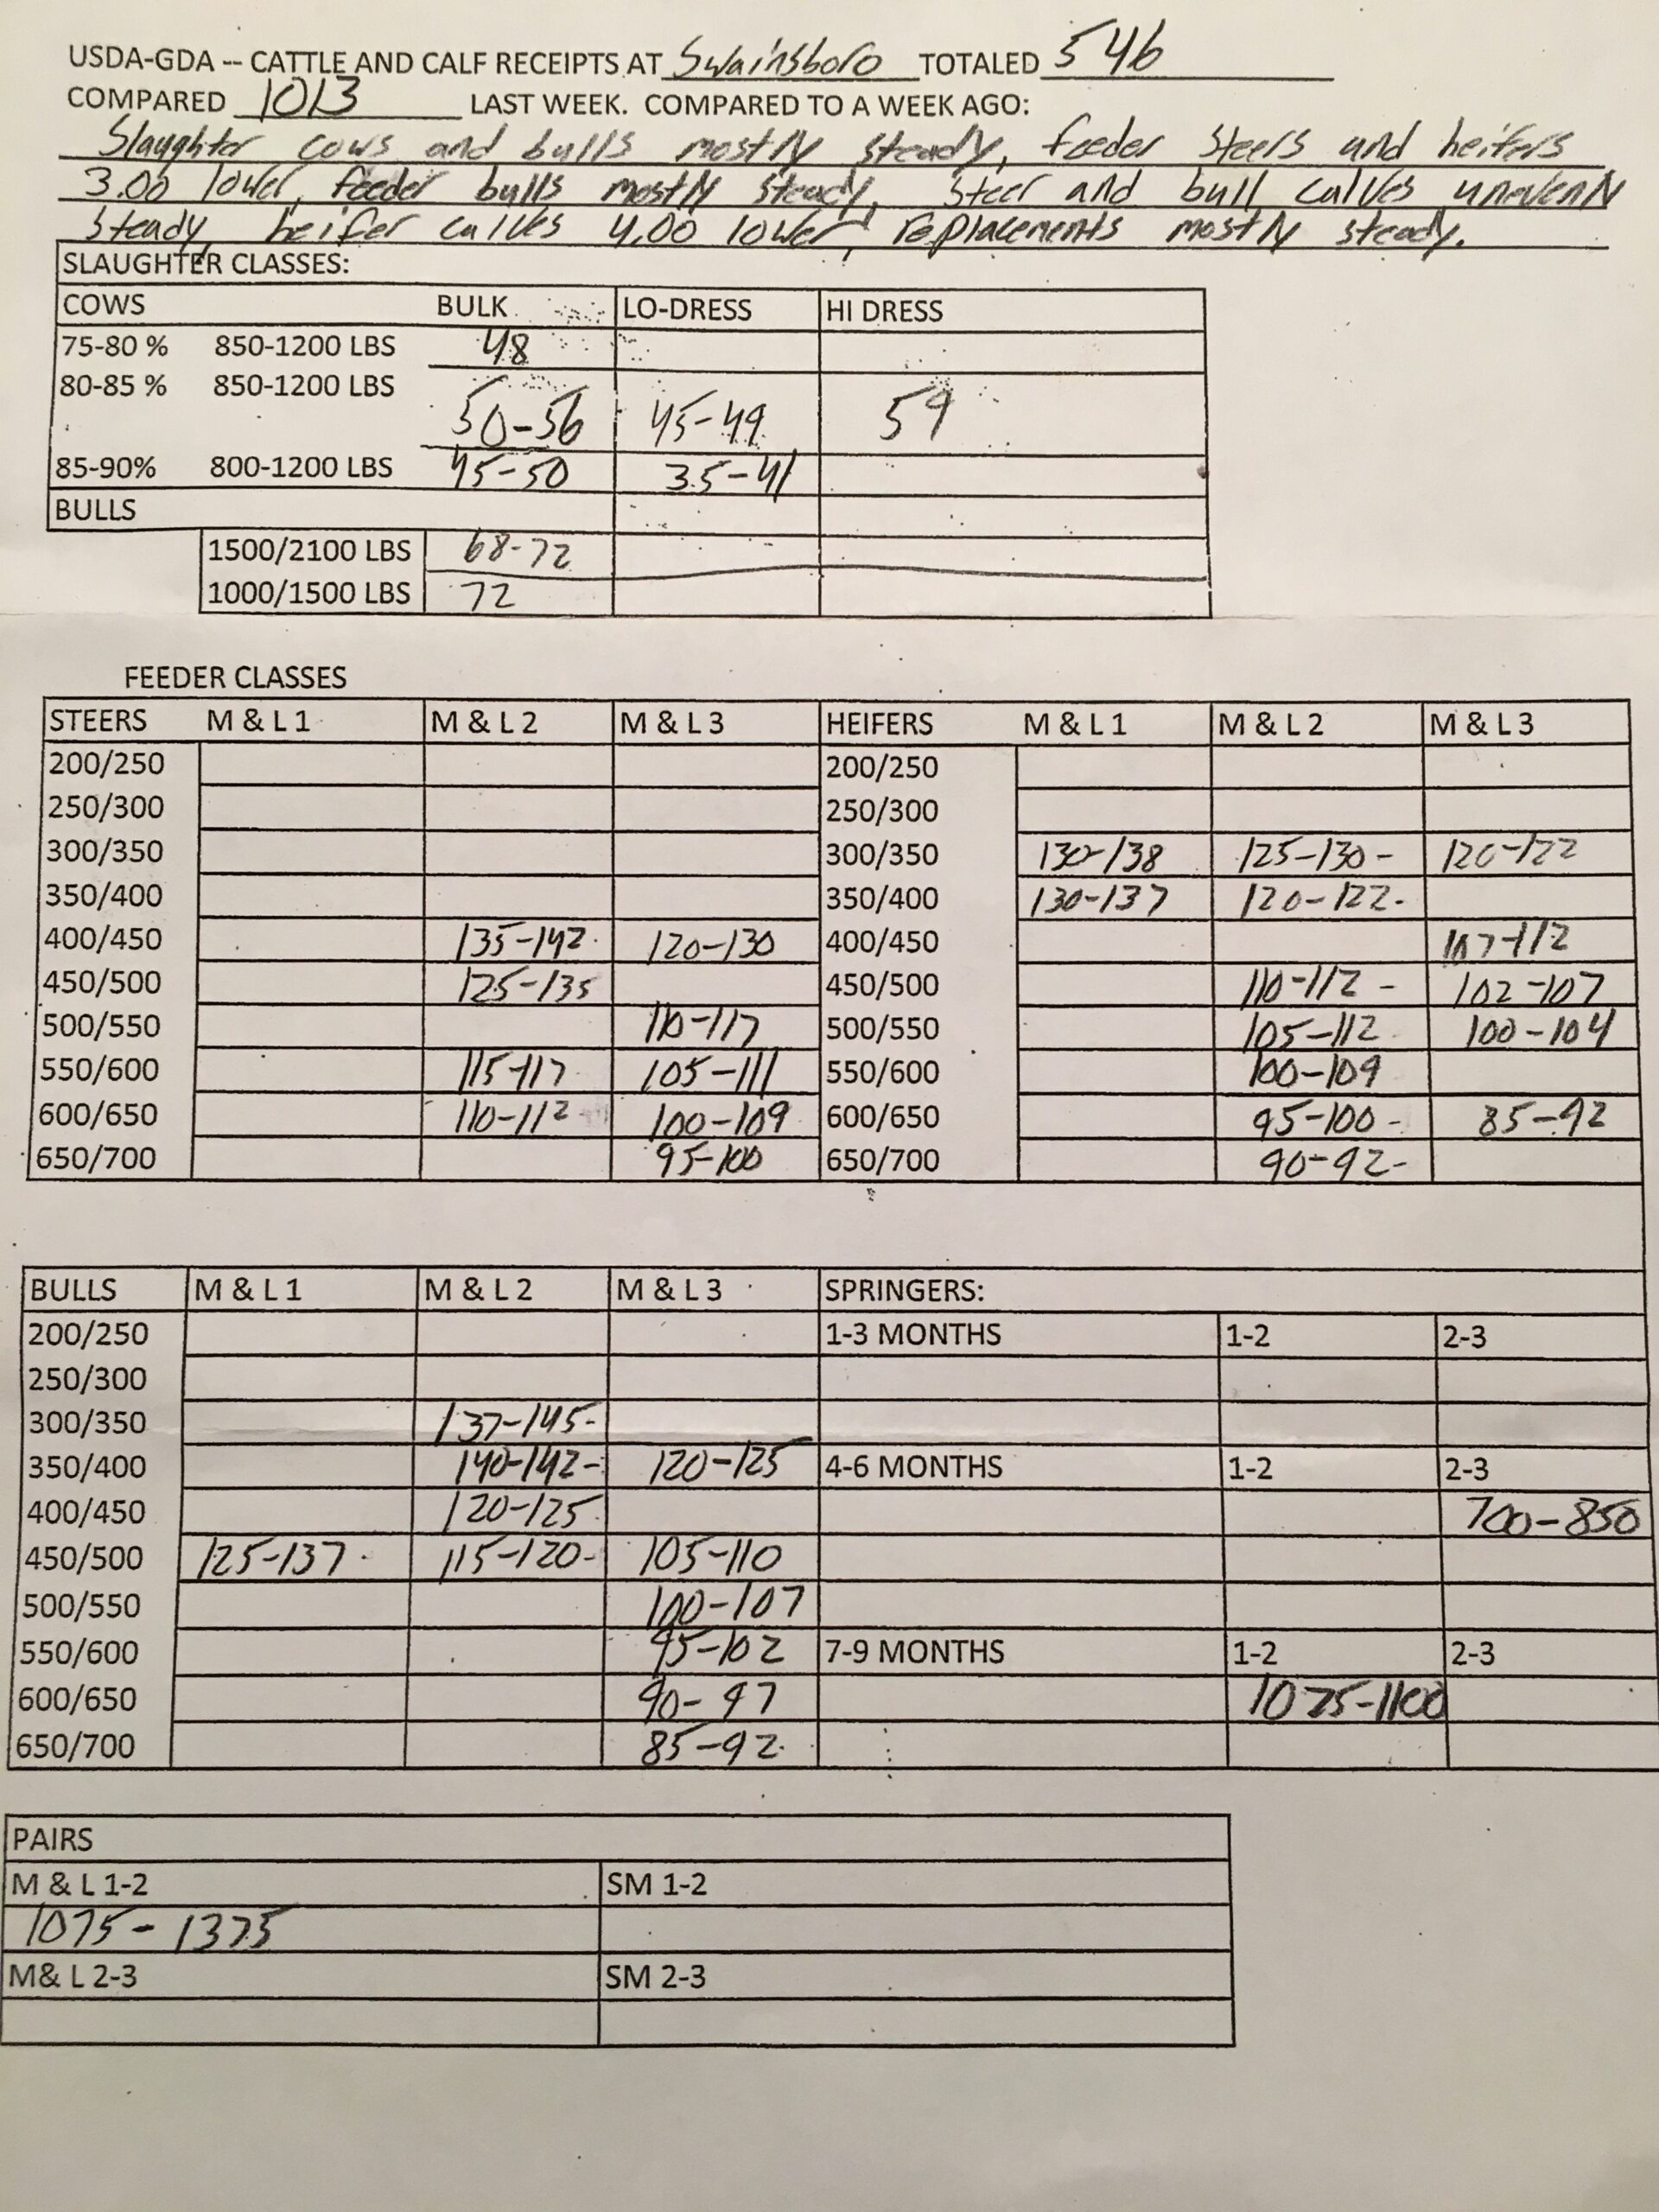 USDA-GDA -- CATTLE AND CALF RECEIPTS AT Swainsboro TOTALED 546
COMPARED 1013 LAST WEEK. COMPARED TO A WEEK AGO:
Slaughter cows and bulls mostly steady, feeder steers and heifers
3.00 lower, feeder bulls mostly steady, steer and bull calves unevenly
steady, heifer calves 4.00 lower, replacements mostly steady.
SLAUGHTER CLASSES:
COWS BULK LO-DRESS HI DRESS
75-80 % 850-1200 LBS 48
80-85 % 850-1200 LBS 50-56 45-49 59
85-90% 800-1200 LBS 45-50 35-41
BULLS
1500/2100 LBS 68-72
1000/1500 LBS 72
FEEDER CLASSES
STEERS M & L 1 M & L 2 M & L 3 HEIFERS M & L 1 M & L 2 M & L 3
200/250 200/250
250/300 250/300
300/350 300/350 130-138 125-130- 120-122
350/400 350/400 130-137 120-122-
400/450 135-142 120-130 400/450 107-112
450/500 125-135 450/500 110-112 - 102-107
500/550 110-117 500/550 105-112 100-104
550/600 115-117 105-111 550/600 100-109
600/650 110-112 100-109 600/650 95-100 - 85-92
650/700 95-100 650/700 90-92-
BULLS M & L 1 M & L 2 M & L 3 SPRINGERS:
200/250 1-3 MONTHS 1-2 2-3
250/300
300/350 137-145-
350/400 140-142- 120-125 4-6 MONTHS 1-2 2-3
400/450 120-125 700-850
450/500 125-137 115-120- 105-110
500/550 100-107
550/600 95-102 7-9 MONTHS 1-2 2-3
600/650 90-97 1075-1100
650/700 85-92
PAIRS
M & L 1-2 SM 1-2
1075-1375
M& L 2-3 SM 2-3